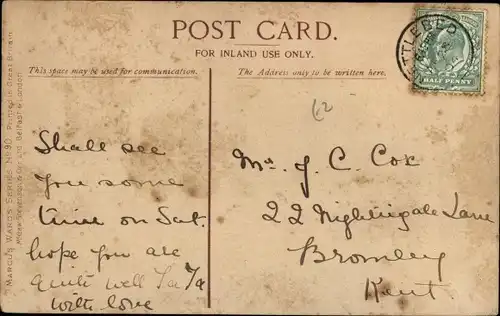 POST CARD.
FOR INLAND USE ONLY.
This space may be used for communication.
The Address only to be written here.
HALF PENNY
62
Shall see
you some
time on Sat.
hope you are
quite well Ta Ta
with love
Mr. J. C. Cox
22 Nightingale Lane
Bromley
Kent
MARCUS WARD'S SERIES No 90. Printed in Great Britain